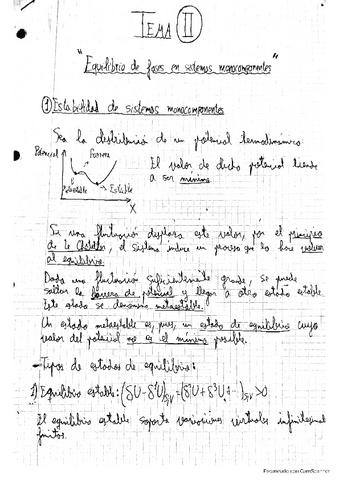 TEMA II
"Equilibrio de fases en sistemas monocomponentes"
① Estabilidad de sistemas monocomponentes
Sea la distribución de un potencial termodinámico:
Potencial
Barrera
Metaestable
Estable
X
El valor de dicho potencial tiende
a ser mínimo
Si una fluctuación desplaza este valor, por el principio
de le Châtelier, el sistema induce un proceso que lo hace volver
al equilibrio.
Dada una fluctuación suficientemente grande, se puede
saltar la barrera de potencial y llegar a otro estado estable.
Este estado se denomina metaestable.
Un estado metaestable es, pues, un estado de equilibrio cuyo
valor del potencial no es el mínimo posible.
- Tipos de estados de equilibrio:
1) Equilibrio estable:
El equilibrio estable soporta variaciones virtuales
finitos.
Escaneado con CamScanner